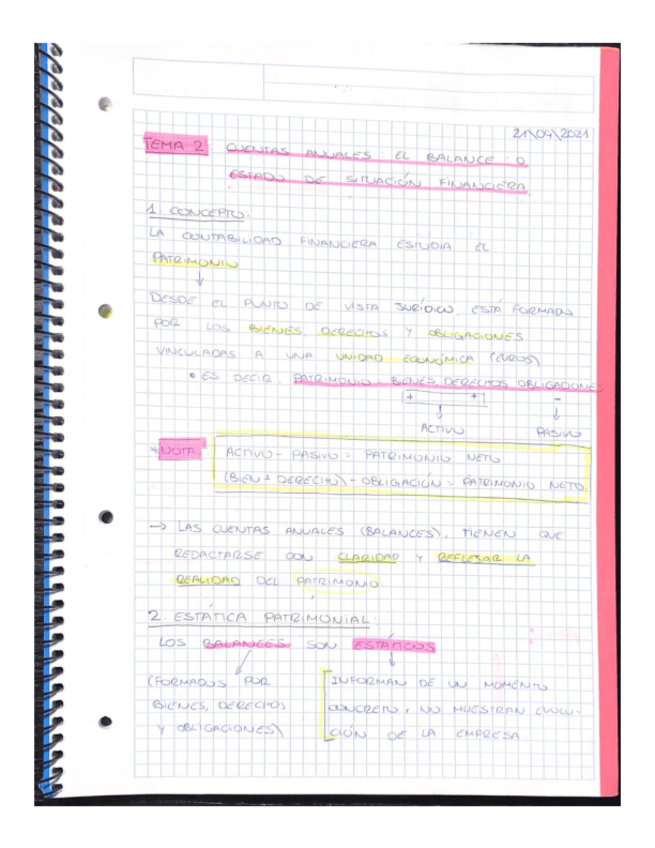 21\04\2021
TEMA 2 CUENTAS ANUALES: EL BALANCE O
ESTADO DE SITUACIÓN FINANCIERA.
1. CONCEPTO:
LA CONTABILIDAD FINANCIERA ESTUDIA EL
PATRIMONIO
↓
DESDE EL PUNTO DE VISTA JURÍDICO, ESTÁ FORMADO
POR LOS BIENES, DERECHOS Y OBLIGACIONES
VINCULADAS A UNA UNIDAD ECONÓMICA (EUROS)
• ES DECIR, PATRIMONIO BIENES DERECHOS OBLIGACIONES
+ + -
↓ ↓
ACTIVO PASIVO
* NOTA ACTIVO - PASIVO = PATRIMONIO NETO
(BIEN + DERECHO) - OBLIGACIÓN = PATRIMONIO NETO
→ LAS CUENTAS ANUALES (BALANCES), TIENEN QUE
REDACTARSE CON CLARIDAD Y REFLEJAR LA
REALIDAD DEL PATRIMONIO.
2. ESTÁTICA PATRIMONIAL:
LOS BALANCES SON ESTÁTICOS
(FORMADOS POR
BIENES, DERECHOS
Y OBLIGACIONES)
INFORMAN DE UN MOMENTO
CONCRETO, NO MUESTRAN EVOLU-
CIÓN DE LA EMPRESA